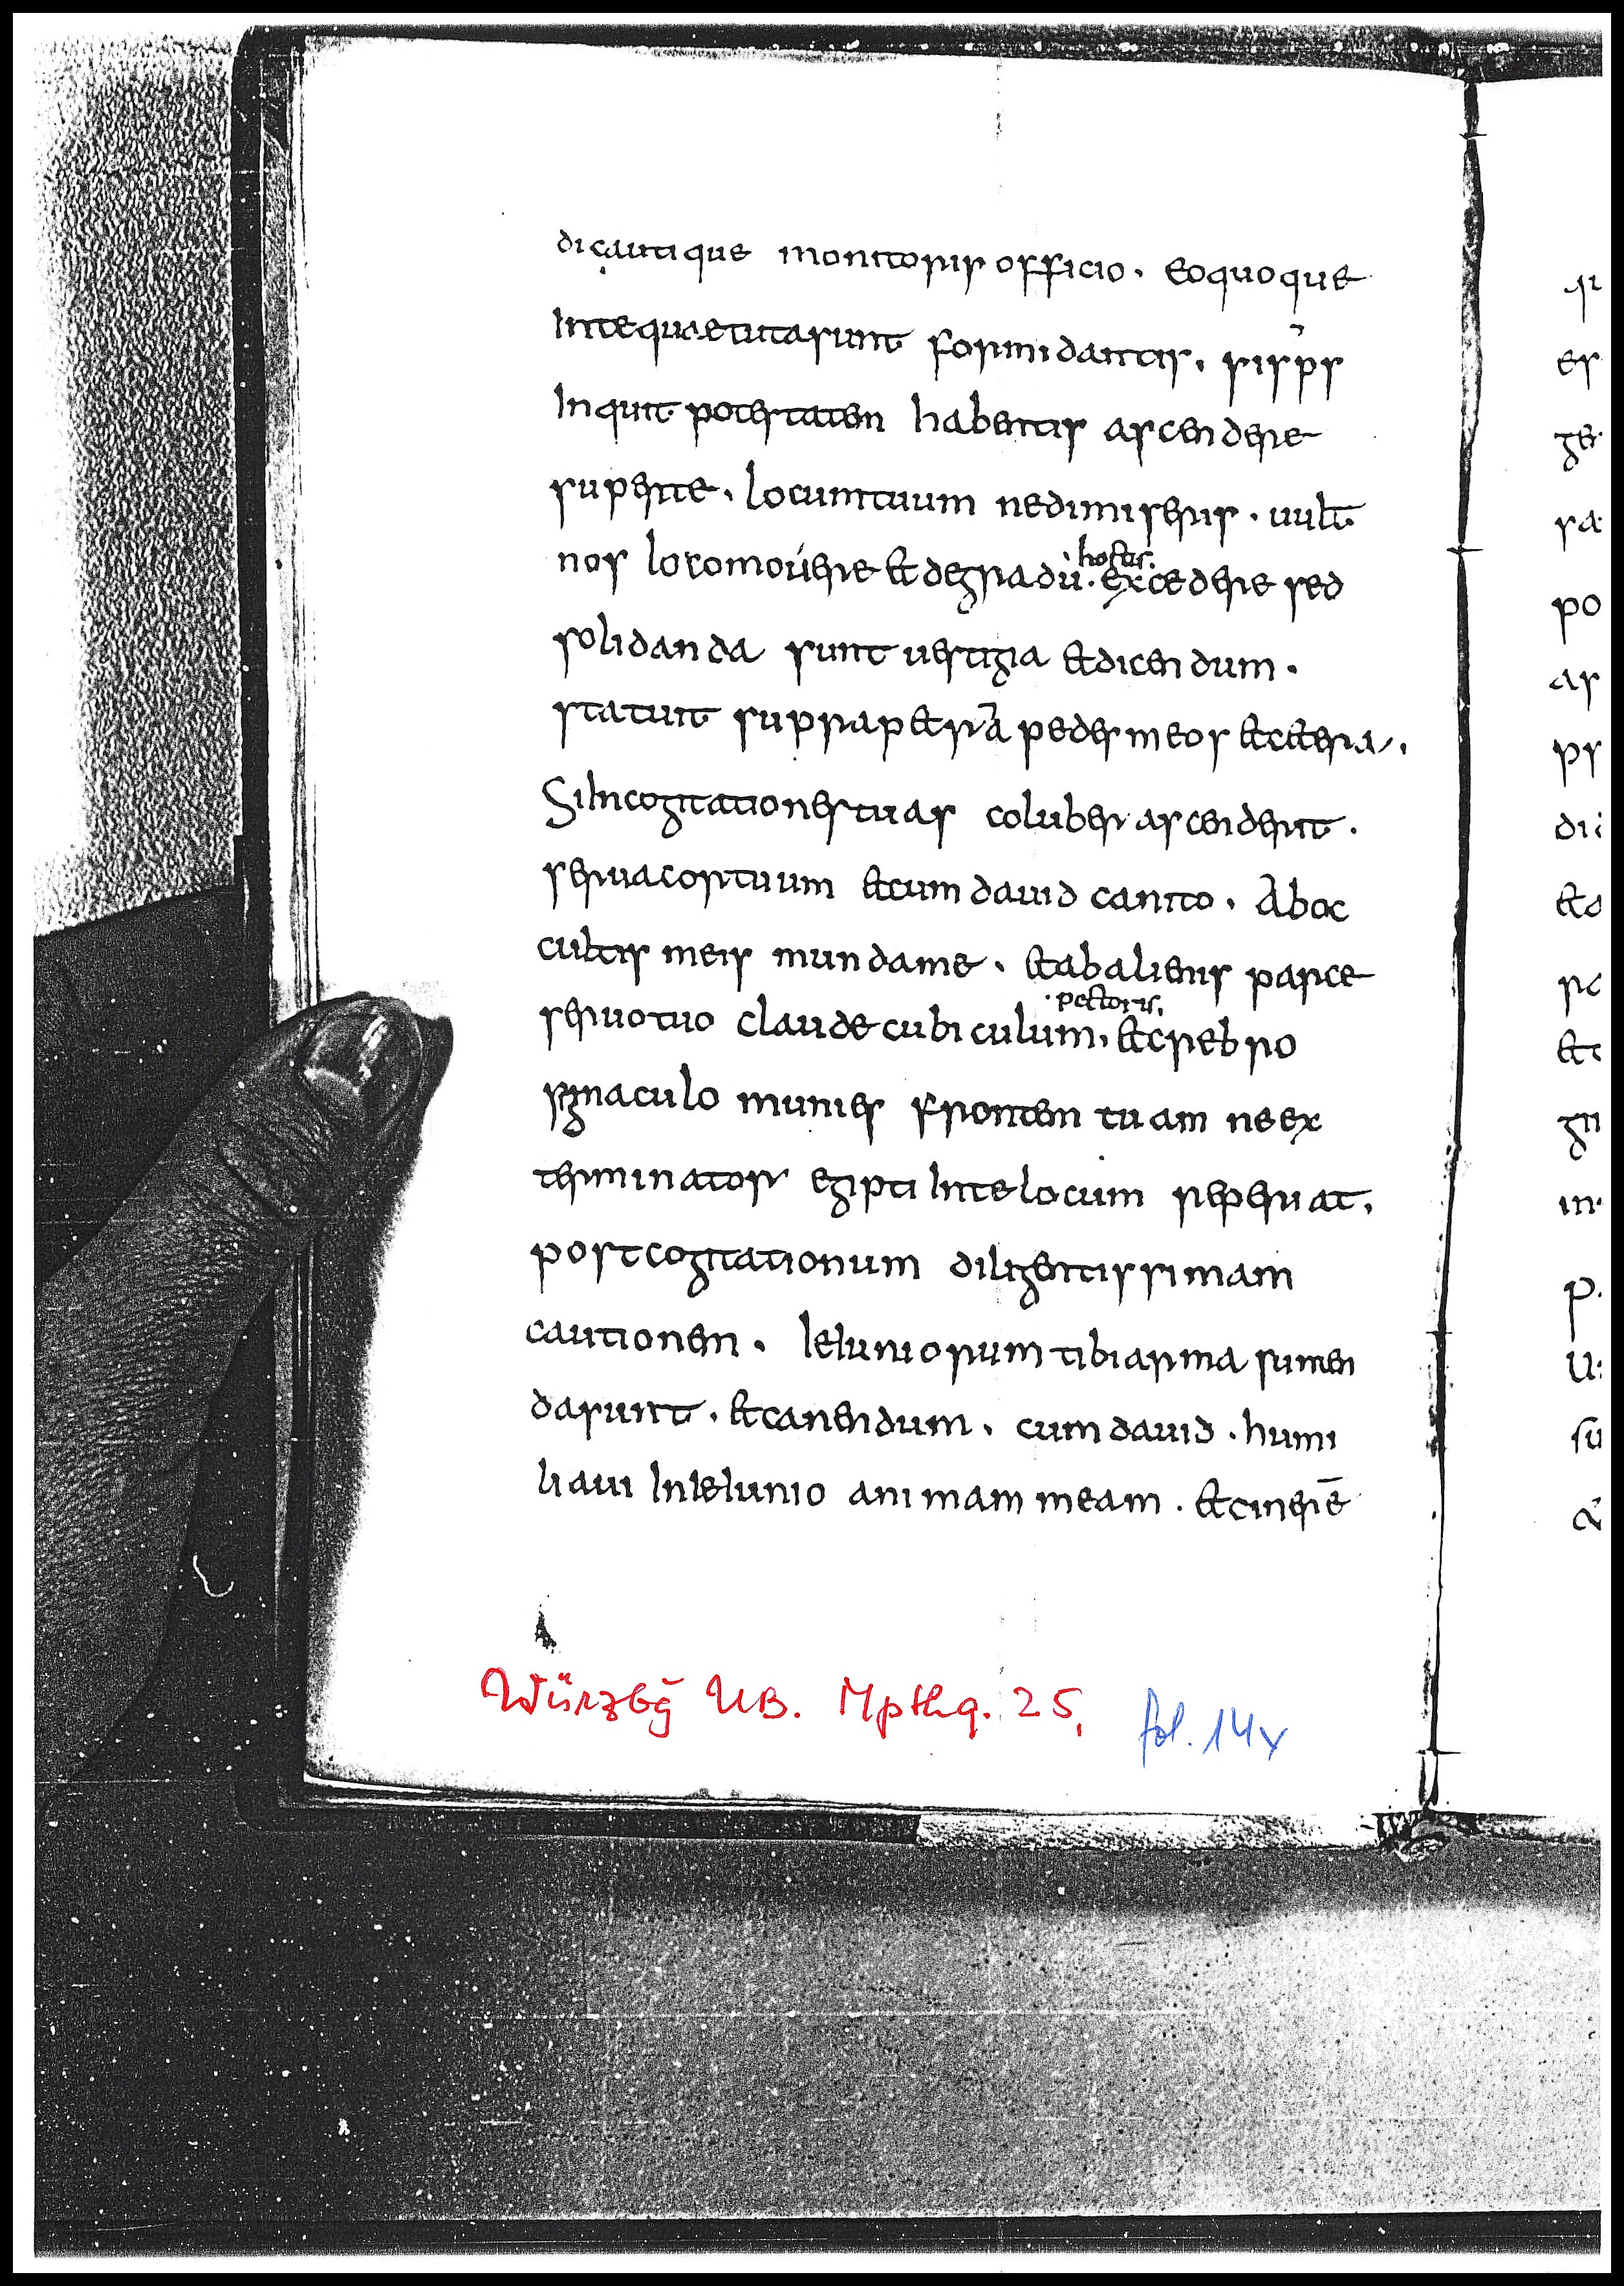 dicautique monitoris officio. eoquoque
Intequaetutasunt formidantis. sisp̄s
Inquit potestatem habentis ascendere
superte. locumtuum nedimiseris. uult
hostis.
nos locomouere &degradu. excedere sed
solidanda sunt uestigia &dicendum.
statuit suprap&rā pedesmeos &c&era.
SiIncogitationestuas coluber ascenderit.
seruacortuum &cumdauid canito. Aboc
cultis meis mundame. &abalienis parce
pectoris.
seruotuo claudecubiculum. &crebro
signaculo munies frontem tuam neex
terminator egipti Intelocum reperiat.
postcogitationum diligentissimam
cautionem. Ieiuniorum tibiarma sumen
dasunt. &canendum. cumdauid. humi
liaui InIeiunio animam meam. &cinerē
Würzbg UB. Mpthq. 25, fol. 14v
es
ge
sa
po
as
ps
&
gn
in
p.
su